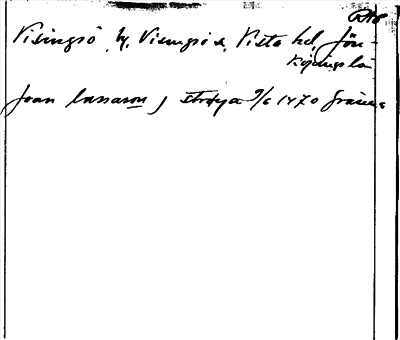 RAP
Visingsö by, Visingsö s, Vista hd, Jön-
köpings län
Joan lassason j ströya 9/6 1470 Gränna